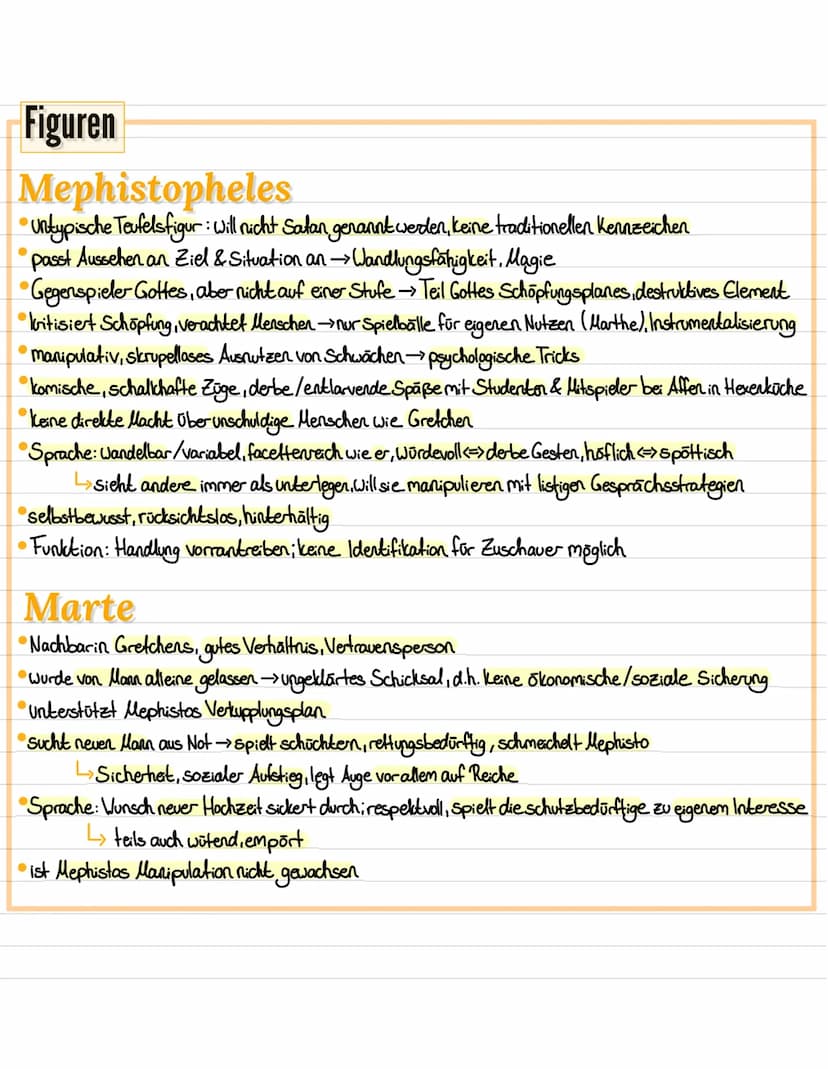 Figuren
Mephistopheles
• untypische Teufelsfigur: will nicht Satan genannt werden, keine traditionellen Kennzeichen
• passt Aussehen an Ziel & Situation an → Wandlungsfähigkeit, Magie
• Gegenspieler Gottes, aber nicht auf einer Stufe → Teil Gottes Schöpfungsplanes, destruktives Element
• kritisiert Schöpfung, verachtet Menschen → nur Spielbälle für eigenen Nutzen (Marthe), Instrumentalisierung
• manipulativ, skrupelloses Ausnutzen von Schwächen → psychologische Tricks
• komische, schalkhafte Züge, derbe/entlarvende Späße mit Studenten & Mitspieler bei Affen in Hexenküche
• keine direkte Macht über unschuldige Menschen wie Gretchen
• Sprache: wandelbar/variabel, facettenreich wie er, würdevoll ⇔ derbe Gesten, höflich ⇔ spöttisch
↳ sieht andere immer als unterlegen, will sie manipulieren mit listigen Gesprächsstrategien
• selbstbewusst, rücksichtslos, hinterhältig
• Funktion: Handlung vorrantreiben; keine Identifikation für Zuschauer möglich
Marte
• Nachbarin Gretchens, gutes Verhältnis, Vertrauensperson
• wurde von Mann alleine gelassen → ungeklärtes Schicksal, d.h. keine ökonomische/soziale Sicherung
• unterstützt Mephistos Verkupplungsplan
• sucht neuen Mann aus Not → spielt schüchtern, rettungsbedürftig, schmeichelt Mephisto
↳ Sicherheit, sozialer Aufstieg, legt Auge vor allem auf Reiche
• Sprache: Wunsch neuer Hochzeit sickert durch; respektvoll, spielt die schutzbedürftige zu eigenem Interesse
↳ teils auch wütend, empört
• ist Mephistos Manipulation nicht gewachsen